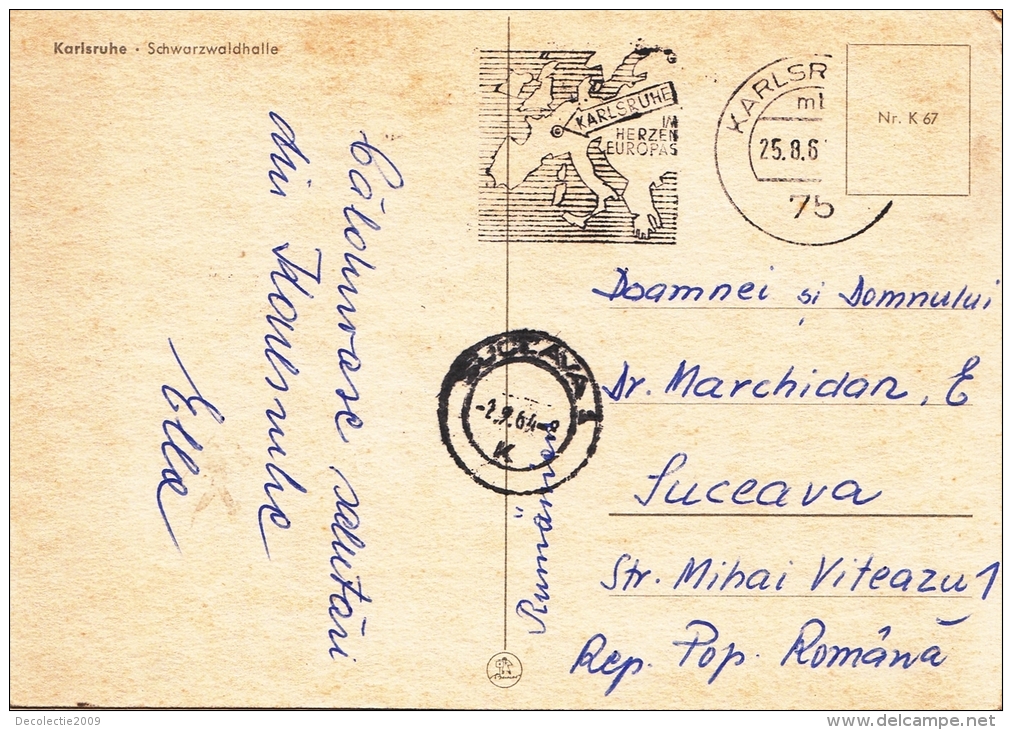 Karlsruhe · Schwarzwaldhalle
Călduroase salutări
din Karlsruhe
Ella
KARLSRUHE
IM
HERZEN
EUROPAS
KARLSR
25.8.6
75
Nr. K 67
Doamnei și Domnului
Dr. Marchidan, E
Suceava
Str. Mihai Viteazu 1
Rep. Pop. Română
SUCEAVA 1
-2.9.64-8
K
"Rumänien"
Decolectie2009
www.delcampe.net